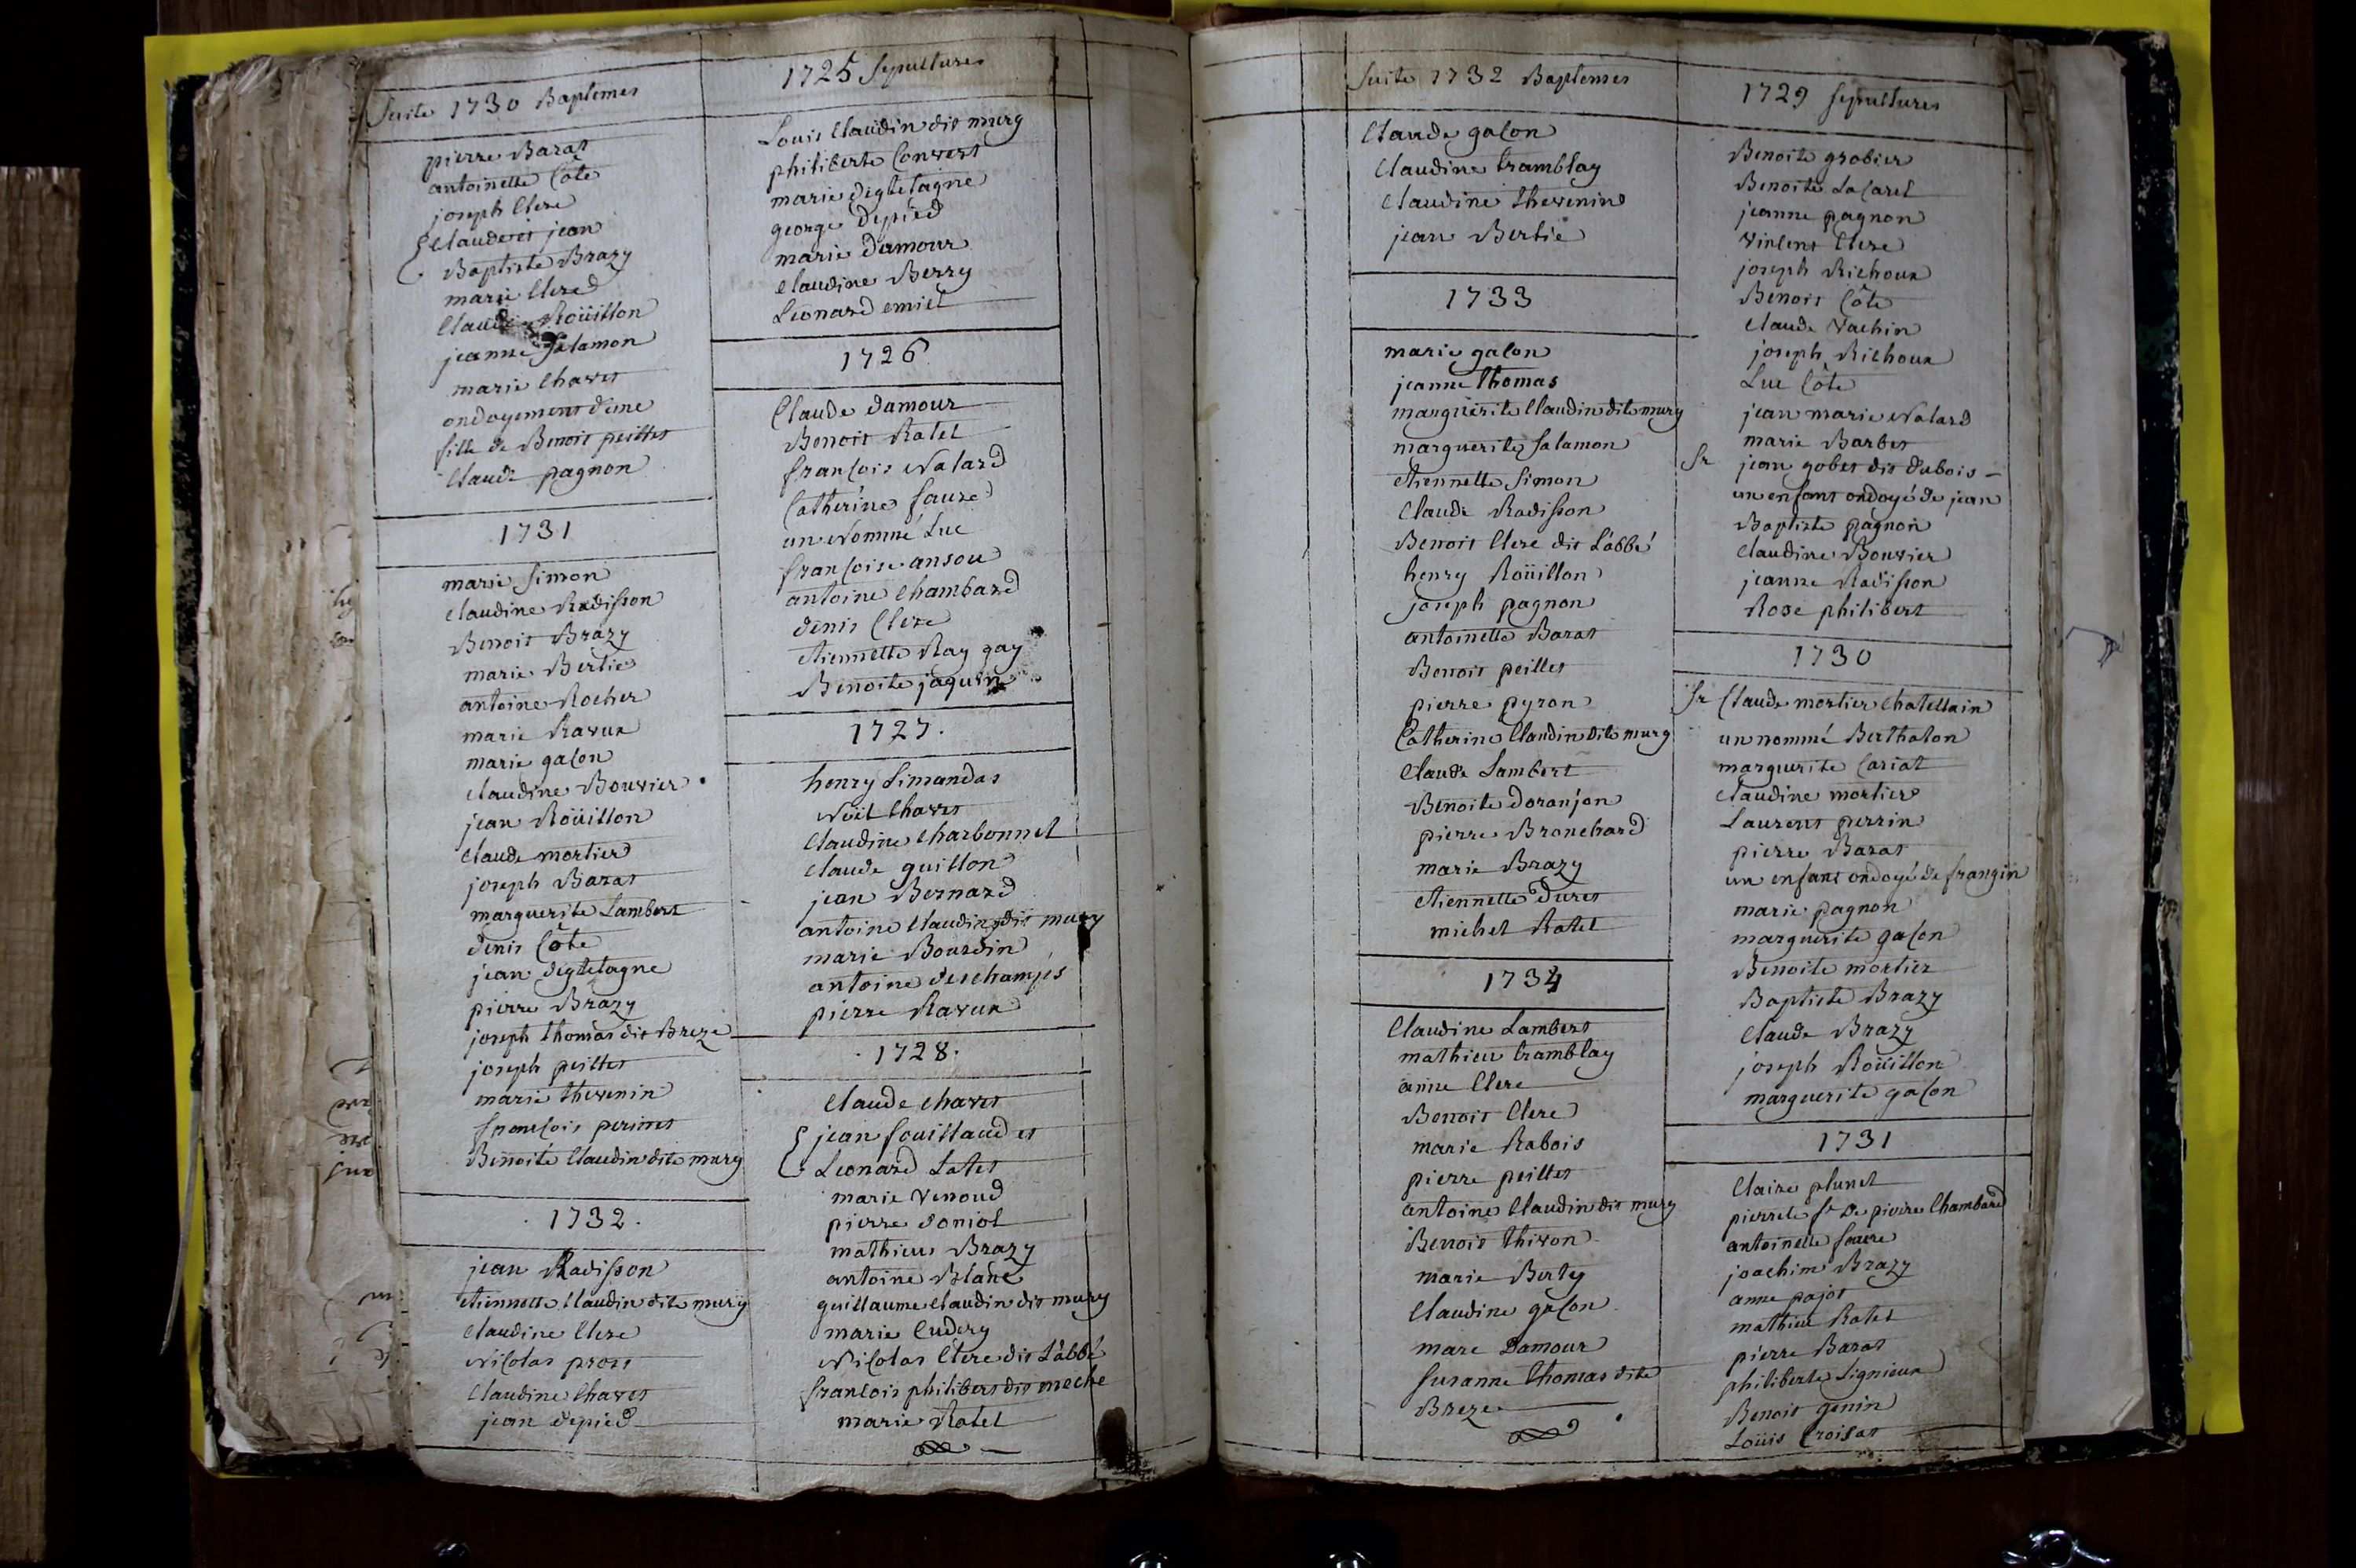 Suite 1730 Baptemes
pierre Barat
antoinette Côte
joseph Clere
Claude et jean
Baptiste Brazy
marie Clere
Claude Roüillon
jeanne Salamon
marie Chavet
ondoyement d'une
fille de Benoit peillet
Claude pagnon
1731
marie Simon
Claudine Radisson
Benoit Brazy
marie Bertie
antoine Rocher
marie Ravux
marie galon
Claudine Bouvier
jean Roüillon
Claude mortier
joseph Barat
marguerite Lambert
denis Côte
jean degletagne
pierre Brazy
joseph thomas dit Breze
joseph peillet
marie thevenin
francois perinet
Benoite Claudin dite mury
1732.
jean Radisson
etiennette Claudin dite mury
Claudine Clere
Nicolas prost
Claudine Chavet
jean depied
1725 Sepultures
Louis Claudin dit mury
philiberte Convert
marie degletagne
george depied
marie damour
Claudine Berry
Leonard emiel
1726
Claude damour
Benoit Ratel
francois Nalard
Catherine faure
un Nommé Luc
francoise ansou
antoine Chambard
denis Clere
etiennette Ray gay
Benoite jaquin
1727.
henry Simandas
Noël Chavet
Claudine Charbonnel
Claude guillon
jean Bernard
antoine Claudin dit mury
marie Bourdin
antoine deschamps
pierre Ravux
1728.
Claude Chavet
jean fouilland et
Leonard Latel
marie Venoud
pierre Soniol
mathieu Brazy
antoine Blanc
guillaume Claudin dit mury
marie Cudery
Nicolas Clere dit L'abbé
francois philibert dit meche
marie Ratel
Suite 1732 Baptemes
Claude galon
Claudine tramblay
Claudine thevenin
jean Bertie
1733
marie galon
jeanne thomas
marguerite Claudin dite mury
marguerite Salamon
etiennette Simon
Claude Radisson
Benoit Clere dit L'abbé
henry Roüillon
joseph pagnon
antoinette Barat
Benoit peillet
pierre pyron
Catherine Claudin dite mury
Claude Lambert
Benoite doranjon
pierre Bronchard
marie Brazy
etiennette Duret
michel Ratel
1734
Claudine Lambert
mathieu tramblay
anne Clere
Benoit Clere
marie Rabois
pierre peillet
antoine Claudin dit mury
Benoit thivon
marie Berty
Claudine galon
marc Damour
Susanne thomas dite
Breze
1729 Sepultures
Benoite grobier
Benoite Lacarel
jeanne pagnon
Vincent Clere
joseph Richoux
Benoit Côte
Claude Vachin
joseph Richoux
Luc Côte
jean marie Nalard
marie Barbet
Sr jean gobet dit dubois
un enfant ondoyé de jean
Baptiste pagnon
Claudine Bouvier
jeanne Radisson
Rose philibert
1730
Sr Claude mortier Chatellain
un nommé Berthalon
marguerite Cariat
Claudine mortier
Laurent perrin
pierre Barat
un enfant ondoyé de frangin
marie pagnon
marguerite galon
Benoite mortier
Baptiste Brazy
Claude Brazy
joseph Roüillon
marguerite galon
1731
Claire plunet
pierrete fe De pierre Chambard
antoinette faure
joachim Brazy
anne pajot
mathieu Ratel
pierre Barat
philiberte Lignieux
Benoit genin
Loüis Croisat